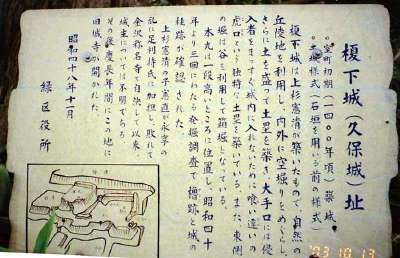 榎下城(久保城)址
○室町初期(一四〇〇年頃)築城
○土城様式(石垣を用いる前の様式)
榎下城は上杉憲清が築いたもので、自然の
丘陵地を利用し、内外に空堀りをめぐらし、
さらに土を盛って土塁を築き、大手口には侵
入者をまっすぐ城内に入れないために喰い違いの
虎口という独特な土塁を築いている。また、東側
の堀は谷を利用して箱堀となっている。
本丸は一段高いところに位置し、昭和四十
年より三回にわたる発掘調査で櫓跡と城の
柱跡が確認された。
上杉憲清の子憲直が永享の
乱に足利持氏に加担し、敗れて
金沢称名寺で自決して以来、
城主については不明であるが
その後慶長年間にこの地に
旧城寺が開かれた。
昭和四十八年十一月
緑区役所
'03 10 13